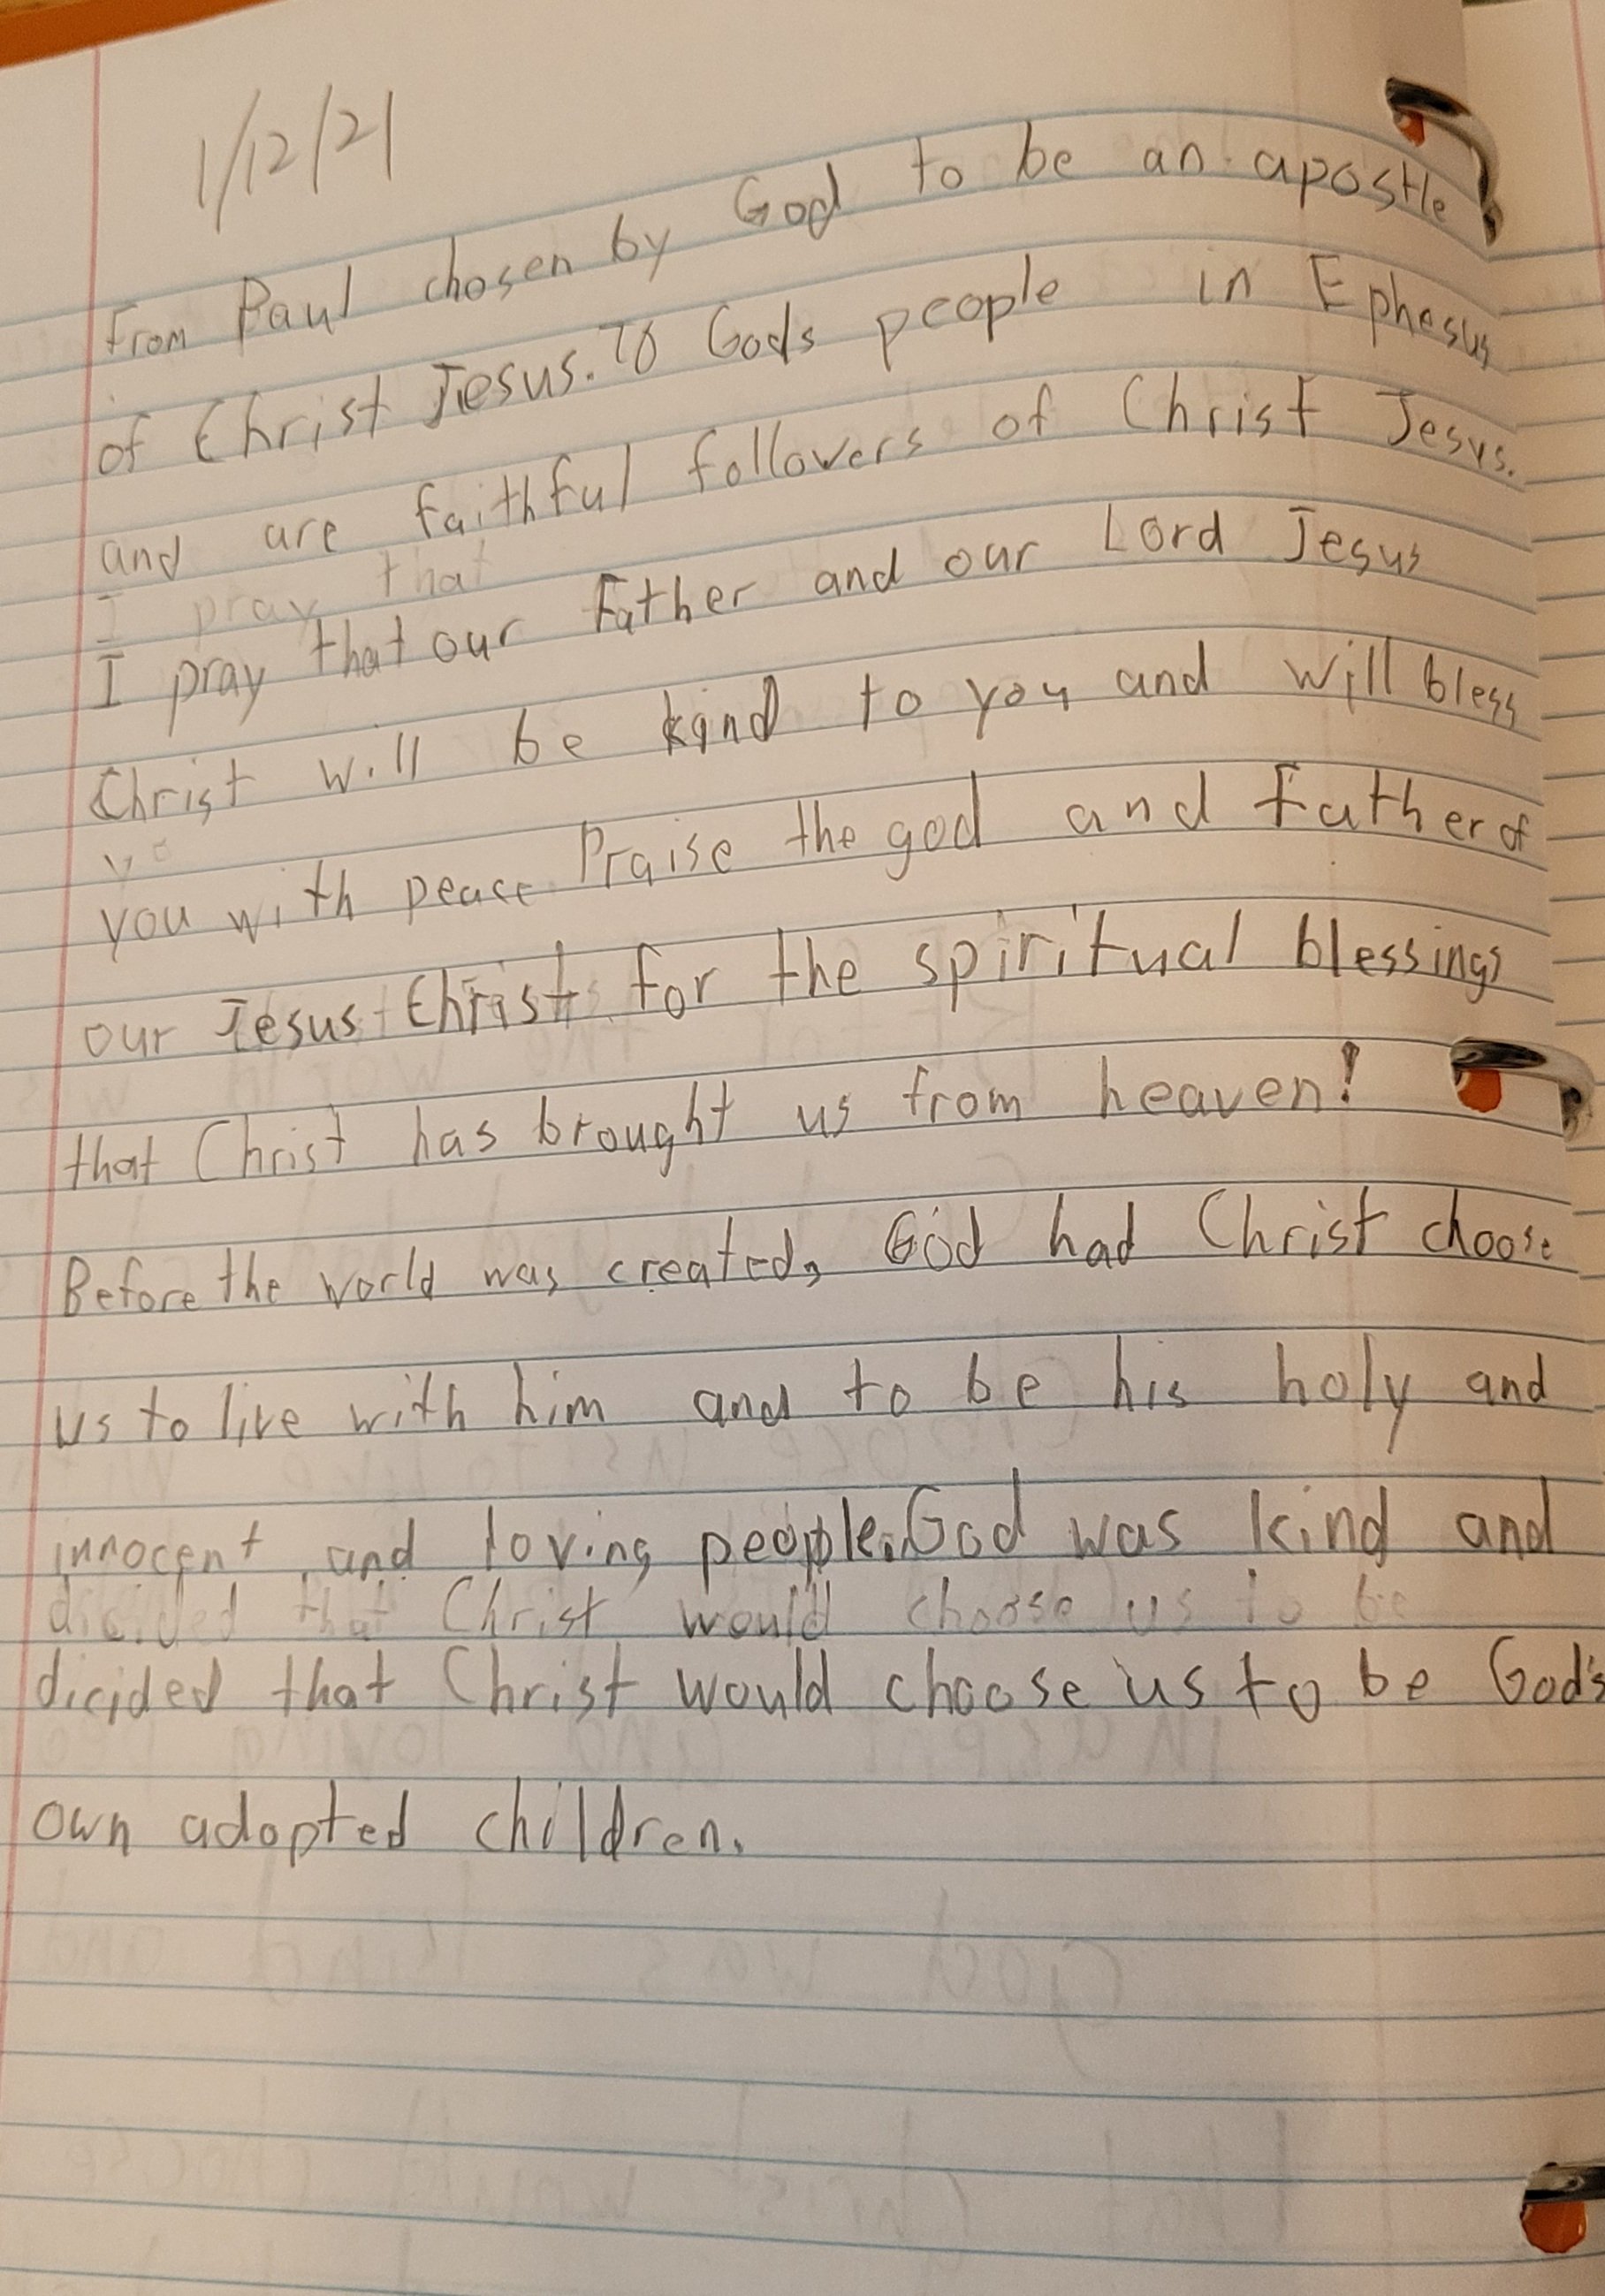 1/12/21
From Paul chosen by God to be an apostle
of Christ Jesus. To Gods people in Ephesus
and are faithful followers of Christ Jesus.
I pray that
I pray that our Father and our Lord Jesus
Christ will be kind to you and will bless
yo
you with peace. Praise the god and Father of
our Jesus Christ for the spiritual blessings
that Christ has brought us from heaven!
Before the world was created, God had Christ choose
us to live with him and to be his holy and
innocent and loving people. God was kind and
dicided that Christ would choose us to be
dicided that Christ would choose us to be God's
own adopted children.